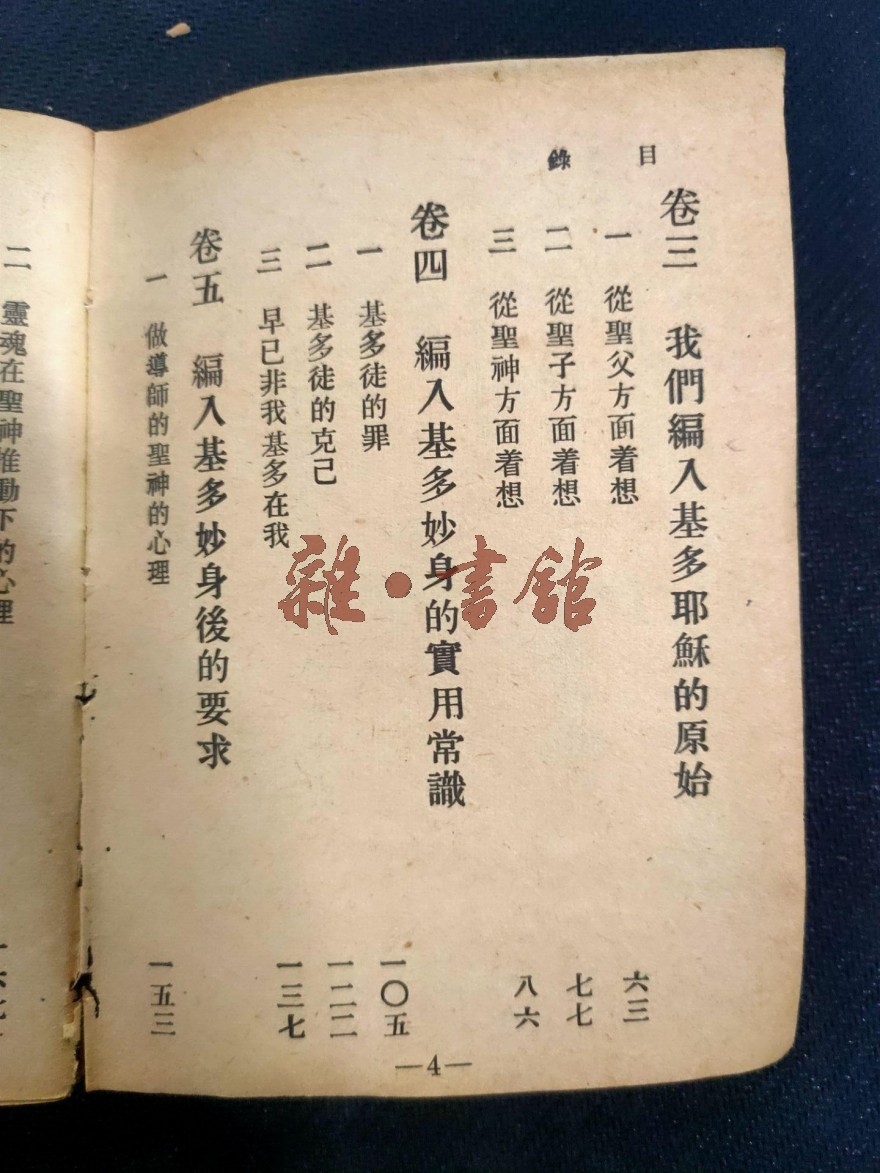 目錄
卷三 我們編入基多耶穌的原始
一 從聖父方面着想 六三
二 從聖子方面着想 七七
三 從聖神方面着想 八六
卷四 編入基多妙身的實用常識
一 基多徒的罪 一〇五
二 基多徒的克己 一二二
三 早已非我基多在我 一三七
卷五 編入基多妙身後的要求
一 做導師的聖神的心理 一五三
—4—
二 靈魂在聖神推動下的心理
雜·書館